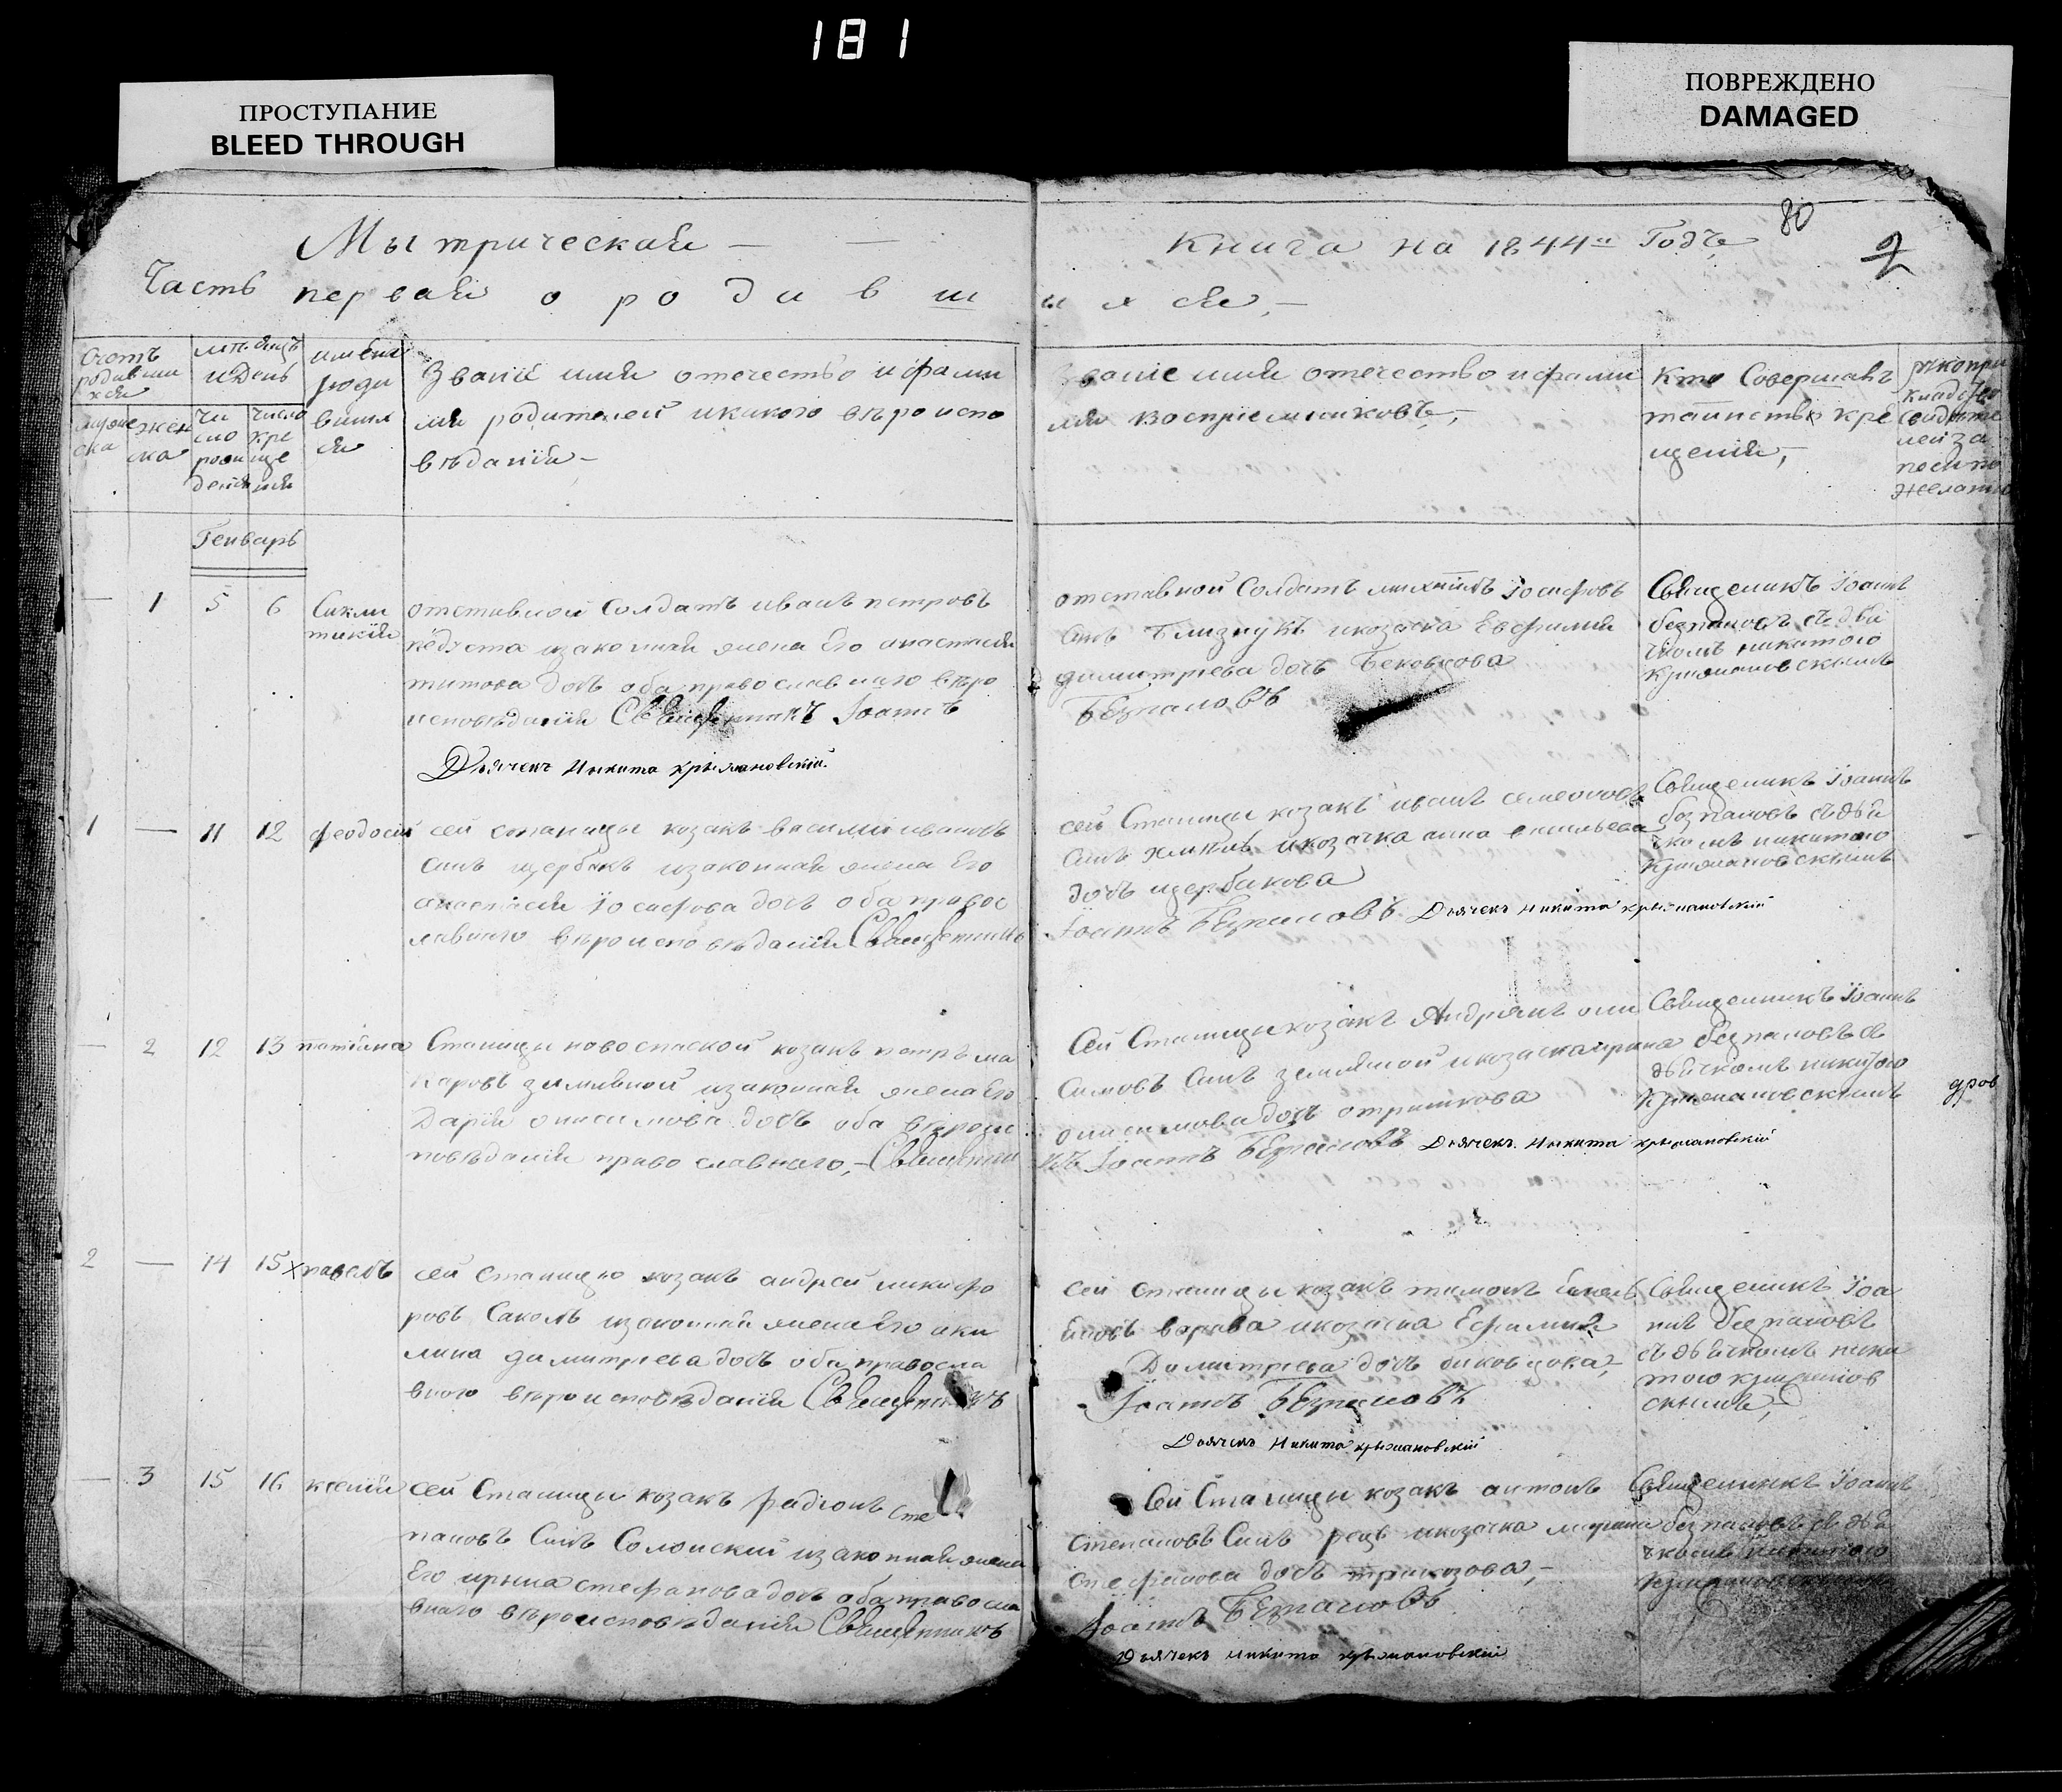 181
ПРОСТУПАНИЕ
BLEED THROUGH
ПОВРЕЖДЕНО
DAMAGED
80
2
Мытрическая — —
Книга на 1844й Годъ
Часть первая о р о д и в ш
и х ся,—
Счотъ
родивши
хся
мѣсяцъ
и День
имена
роди
вшых
ся
Званіе имя отечество и фами
лія родителей и какого вѣроиспо
вѣданія —
муже
ска
жен
ска
чи
сло
рож
денія
число
кре
ще
нія
Званіе имя отечество и фами
лія воспріемниковъ,—
Кто Совершавъ
таинство кре
щенія,—
Рукопри
кладство
свидѣте
лей за
писи по
желанію
Генварь
— 1 5 6
Сикли
тикія
отставной Солдатъ иванъ петровъ
изаконная жена Его анастасия
титова дочь оба православнаго вѣро
исповѣданія Священникъ Іоаннъ
Дьячекъ Никита Крыжановскій
отставной Солдатъ михаилъ Іосифовъ
Сынъ Близнукъ икозачка Евфимия
димитрева дочь
Безпаловъ
Священикъ Іоаннъ
безпаловъ съ дья
чкомъ никитою
Крижановскимъ
1 — 11 12 феодосій
сей станицы козакъ василій ивановъ
Сынъ щербакъ изаконная жена Его
анастасия Іосифова дочь оба правос
лавнаго вѣроисповѣданія Священникъ
сей Станицы козакъ иванъ семеоновъ
Сынъ икозачка анна васильева
дочь щербакова
Іоаннъ Безпаловъ Дьячекъ Никита Крыжановскій
Священикъ Іоаннъ
безпаловъ съ дья
чкомъ никитою
Крижановскимъ
— 2 12 13 татіяна
Станицы новоспаской козакъ петръ ма
каровъ изаконная жена Его
Дарія онисимова дочь оба вѣроис
повѣданія православнаго,— Священни
Сей Станицы козакъ Андреянъ они
симовъ Сынъ икозачка ирина
онисимова дочь
къ Іоаннъ Безпаловъ Дьячекъ Никита Крыжановскій
Священникъ Іоаннъ
безпаловъ съ
дьячкомъ никитою
Крижановскимъ
дров
2 — 14 15 х павелъ
сей Станицы козакъ андрей никифо
ровъ Саколъ изаконная жена Его аки
лина димитрева дочь оба правосла
вного вѣроисповѣданія Священникъ
Сей Станицы козакъ тимофъ
варава икозачка Ефимия
Димитрева дочь
Іоаннъ Безпаловъ
Дьячекъ Никита Крыжановскій
Священикъ Іоа
ннъ безпаловъ
съ дьячкомъ ники
тою крижанов
скимъ,
— 3 15 16 ксенія
сей Станицы козакъ радіонъ сте
пановъ Сынъ Солонский изаконная жена
Его ирына стефанова дочь оба правосла
вного вѣроисповѣданія Священникъ
Сей Станицы козакъ антонъ
степановъ Сынъ икозачка марина
стефанова дочь
Іоаннъ Безпаловъ
Дьячекъ Никита Крыжановскій
Священникъ Іоаннъ
безпаловъ съ дья
чкомъ никитою
Крижановскимъ